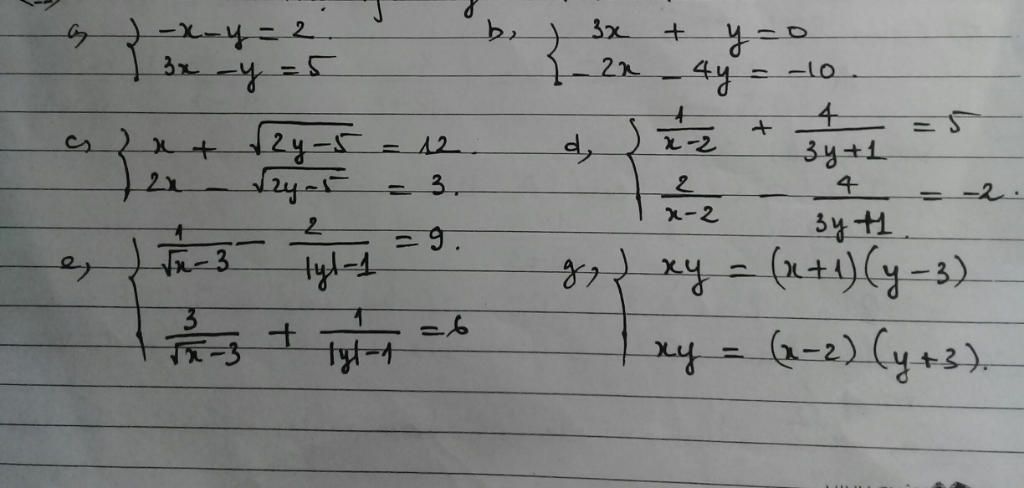 a, { -x - y = 2
3x - y = 5
b, { 3x + y = 0
-2x - 4y = -10.
c, { x + √(2y-5) = 12.
2x - √(2y-5) = 3.
d, { 1/(x-2) + 4/(3y+1) = 5
2/(x-2) - 4/(3y+1) = -2.
e, { 1/(√x-3) - 2/(|y|-1) = 9.
3/(√x-3) + 1/(|y|-1) = 6
g, { xy = (x+1)(y-3)
xy = (x-2)(y+3).